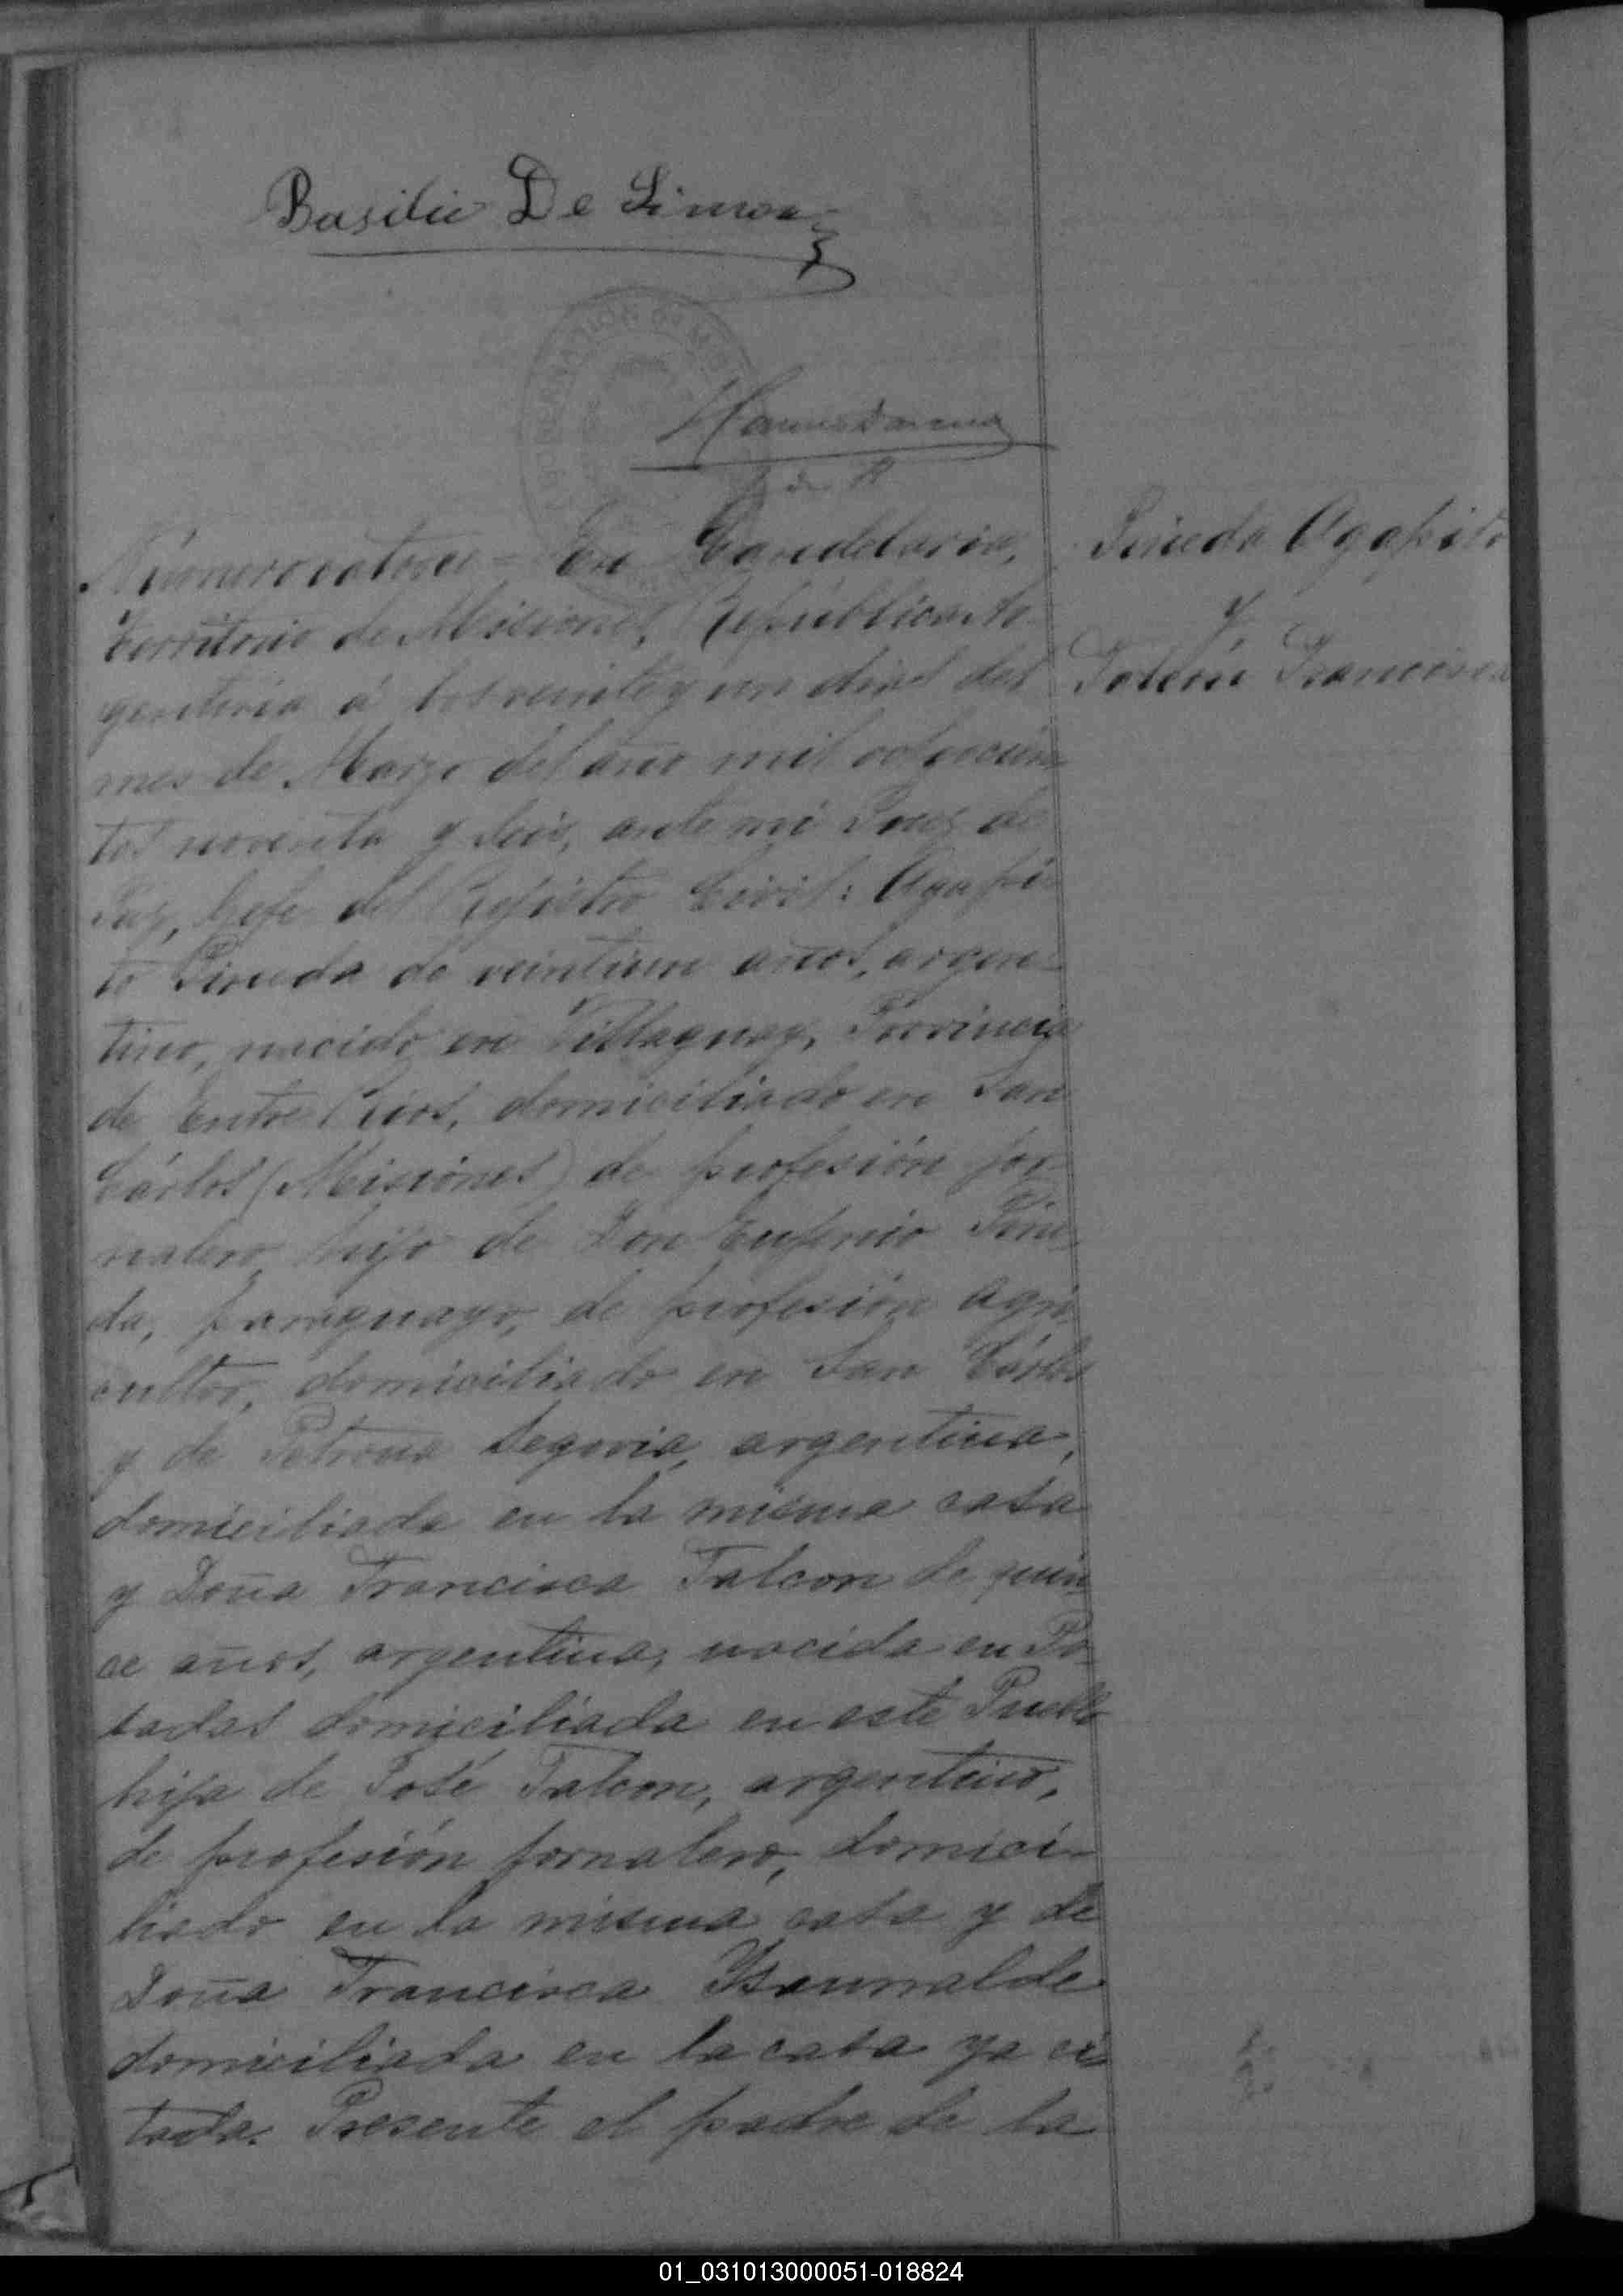 Basilio De Simon
GOBERNACION DE MIS
J de P
Número catorce = En Candelaria,
Territorio de Misiones, República Ar
gentina á los veinte y un dias del
mes de Marzo del año mil ochocien
tos noventa y seis, ante mi Juez de
Paz, Gefe del Registro Civil: Agapi
to Pineda de veintiun años, argen-
tino, nacido en Villaguay, Provincia
de Entre Rios, domiciliado en San
Cárlos (Misiones) de profesión jor-
nalero, hijo de Don Eugenio Pine
da, paraguayo, de profesión agri
cultor, domiciliado en San Cárlos
y de Petrona Segovia, argentina,
domiciliada en la misma casa
y Doña Francisca Falcon de quin
ce años, argentina, nacida en Po
sadas domiciliada en este Pueblo
hija de José Falcon, argentino,
de profesión jornalero, domici-
liado en la misma casa y de
Doña Francisca
domiciliada en la casa ya ci
tada. Presente el padre de la
Pineda Agapito
y
Falcón Francisca
01_031013000051-018824